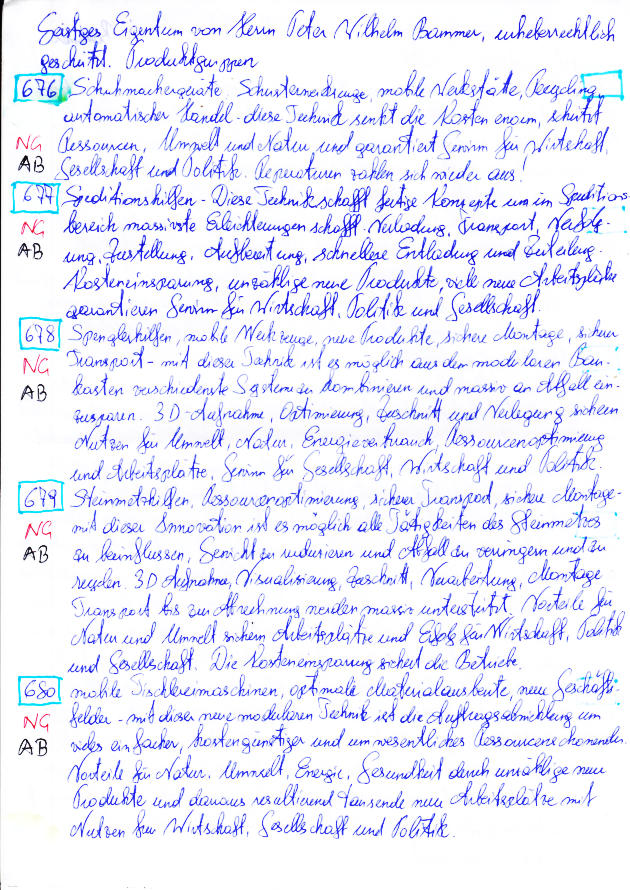 Geistiges Eigentum von Herrn Peter Wilhelm Bammer, urheberrechtlich
geschützt. Produktgruppen
676 Schuhmachergeräte Schusterwerkzeuge, mobile Werkstätte, Recycling,
automatischer Handel - diese Technik senkt die Kosten enorm, schützt
NG Ressourcen, Umwelt und Natur und garantiert Gewinn für Wirtschaft,
AB Gesellschaft und Politik. Reperaturen zahlen sich wieder aus!
677 Speditionshilfen - Diese Technik schafft fertige Konzepte um im Speditions-
NG bereich massivste Erleichterungen schafft. Verladung, Transport, Verfolg-
AB ung, Zustellung, Aufbereitung, schnellere Entladung und Zuteilung.
Kosteneinsparung, unzählige neue Produkte, viele neue Arbeitsplätze
garantieren Gewinn für Wirtschaft, Politik und Gesellschaft.
678 Spenglerhilfen, mobile Werkzeuge, neue Produkte, sichere Montage, sicherer
NG Transport - mit dieser Technik ist es möglich aus dem modularen Bau-
AB kasten verschiedenste Systeme zu kombinieren und massiv an Abfall ein-
zusparen. 3D-Aufnahme, Optimierung, Zuschnitt und Verlegung sichern
Nutzen für Umwelt, Natur, Energieverbrauch, Ressourcenoptimierung
und Arbeitsplätze, Gewinn für Gesellschaft, Wirtschaft und Politik.
679 Steinmetzhilfen, Ressourcenoptimierung, sicherer Transport, sichere Montage-
NG mit dieser Innovation ist es möglich alle Tätigkeiten des Steinmetzes
AB zu beeinflussen, Gewicht zu reduzieren und Abfall zu verringern und zu
recyclen. 3D Aufnahme, Visualisierung, Zuschnitt, Verarbeitung, Montage
Transport bis zur Abrechnung werden massiv unterstützt. Vorteile für
Natur und Umwelt sichern Arbeitsplätze und Erfolg für Wirtschaft, Politik
und Gesellschaft. Die Kosteneinsparung sichert die Betriebe.
680 mobile Tischlereimaschinen, optimale Materialausbeute, neue Geschäfts-
NG felder - mit dieser neue modularen Technik ist die Auftragsabwicklung um
AB vieles einfacher, kostengünstiger und um wesentliches Ressourcenschonender.
Vorteile für Natur, Umwelt, Energie, Gesundheit durch unzählige neue
Produkte und daraus resultierend tausende neue Arbeitsplätze mit
Nutzen für Wirtschaft, Gesellschaft und Politik.